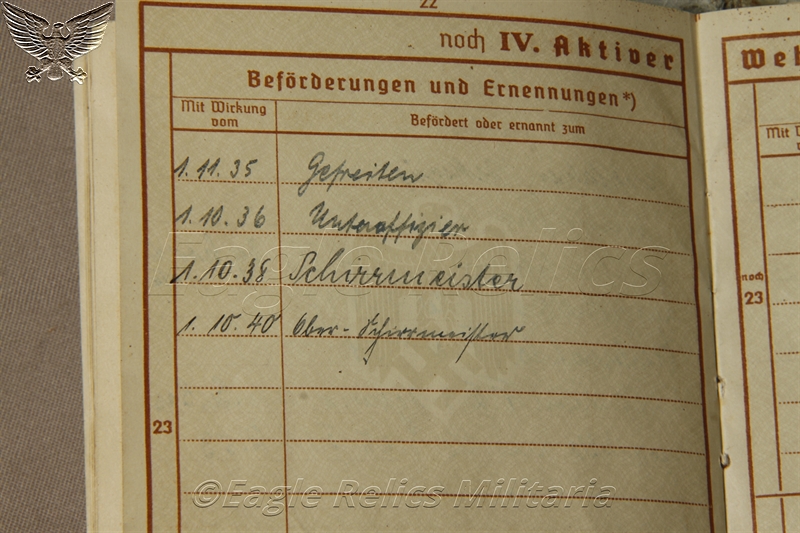 22
noch IV. Aktiver
Beförderungen und Ernennungen*)
Mit Wirkung vom
Befördert oder ernannt zum
1.11.35 Gefreiten
1.10.36 Unteroffizier
1.10.38 Schirrmeister
1.10.40 Ober-Schirrmeister
23
Weh
Mit W
vom
noch
23
Eagle Relics
©Eagle Relics Militaria